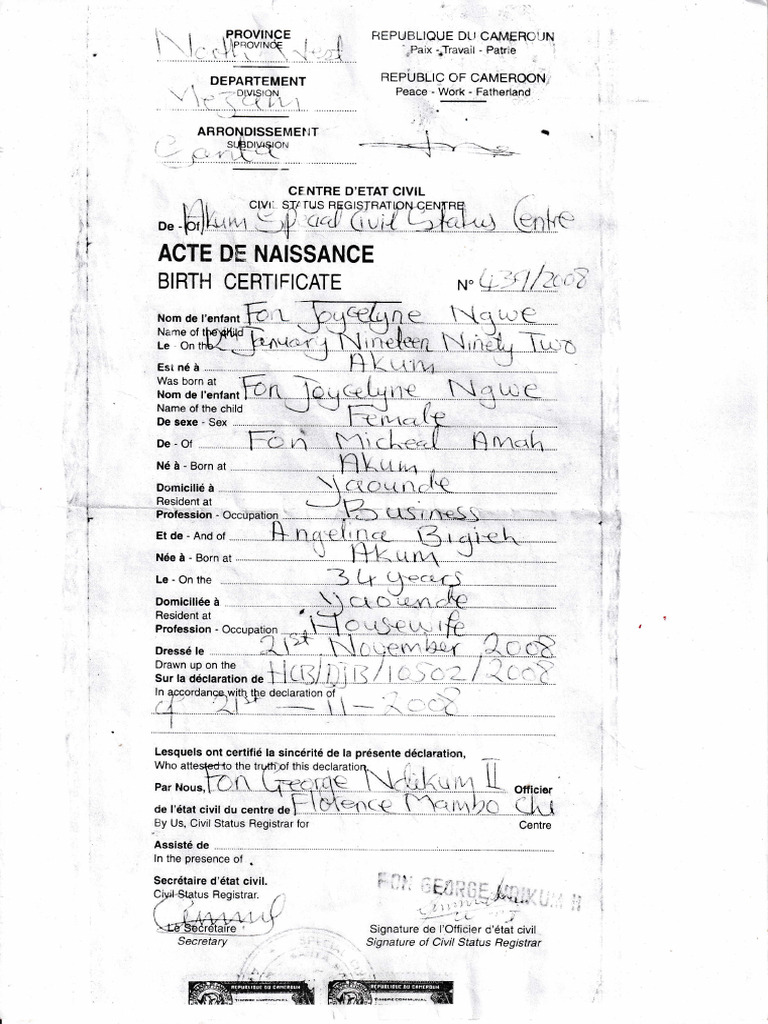 PROVINCE
PROVINCE
North West
REPUBLIQUE DU CAMEROUN
Paix - Travail - Patrie
DEPARTEMENT
DIVISION
Mezam
REPUBLIC OF CAMEROON
Peace - Work - Fatherland
ARRONDISSEMENT
SUBDIVISION
Santa
CENTRE D'ETAT CIVIL
CIVIL STATUS REGISTRATION CENTRE
De - Of Akum Special Civil Status Centre
ACTE DE NAISSANCE
BIRTH CERTIFICATE N° 439/2008
Nom de l'enfant Fon Joycelyne Ngwe
Name of the child
Le - On the January Nineteen Ninety Two
Est né à Akum
Was born at
Nom de l'enfant Fon Joycelyne Ngwe
Name of the child
De sexe - Sex Female
De - Of Fon Micheal Amah
Né à - Born at Akum
Domicilié à Yaounde
Resident at
Profession - Occupation Business
Et de - And of Angelina Bigieh
Née à - Born at Akum
Le - On the 34 years
Domiciliée à Yaounde
Resident at
Profession - Occupation Housewife
Dressé le 21st November 2008
Drawn up on the
Sur la déclaration de HCB/DJB/10502/2008
In accordance with the declaration of
of 21st - 11 - 2008
Lesquels ont certifié la sincérité de la présente déclaration,
Who attested to the truth of this declaration
Par Nous, Fon George Ndikum II Officier
de l'état civil du centre de Florence Mambo Chi
By Us, Civil Status Registrar for Centre
Assisté de
In the presence of
Secrétaire d'état civil.
Civil Status Registrar.
FON GEORGE NDIKUM II
Le Secrétaire
Secretary
Signature de l'Officier d'état civil
Signature of Civil Status Registrar
SPECIAL
REPUBLIQUE DU CAMEROUN
TIMBRE COMMUNAL
REPUBLIQUE DU CAMEROUN
TIMBRE COMMUNAL